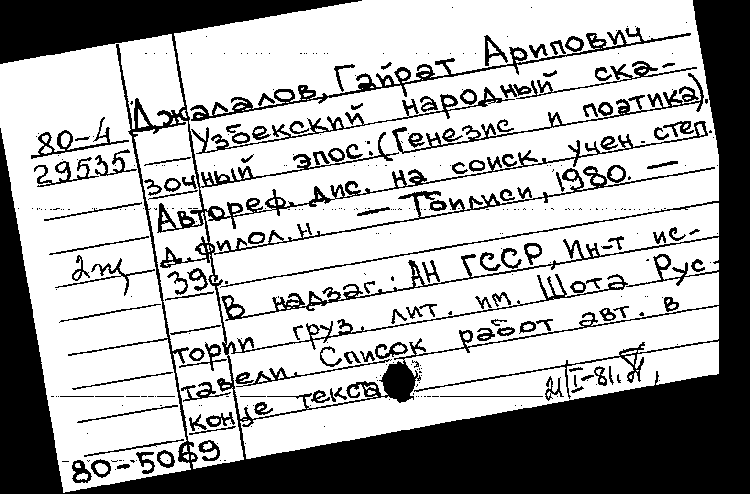 Джалалов, Гайрат Арипович.
80-4
29535
Узбекский народный ска-
зочный эпос: (Генезис и поэтика).
Автореф. дис. на соиск. учен. степ.
д. филол. н. — Тбилиси, 1980. —
39с.
В надзаг.: АН ГССР, Ин-т ис-
тории груз. лит. им. Шота Рус-
тавели. Список работ авт. в
конце текста
80-5069